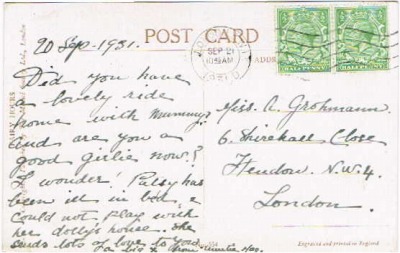 POST CARD
20 Sep. 1931.
Did you have
a lovely ride
home with Mummy?
And are you a
good girlie now?
I wonder! Patsy has
been ill in bed, &
could not play with
her dolly's house. She
sends lots of love to you
& a kiss x from Auntie
SEP 21
10:30 AM
ADDR
HALFPENNY
HALFPENNY
Miss A. Grohmann.
6. Shirehall Close
Hendon. N.W.4.
London.
Engraved and printed in England